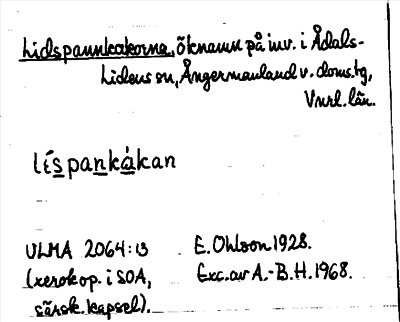 Lidspannkakorna, öknamn på inv. i Ådals-
Lidens sn, Ångermanland v. doms.tg,
Vnrl. län.
lÉspankákan
ULMA 2064:13 E. Ohlson 1928.
(xerokop. i SOA, Exc. av A.-B.H. 1968.
särsk. kapsel).